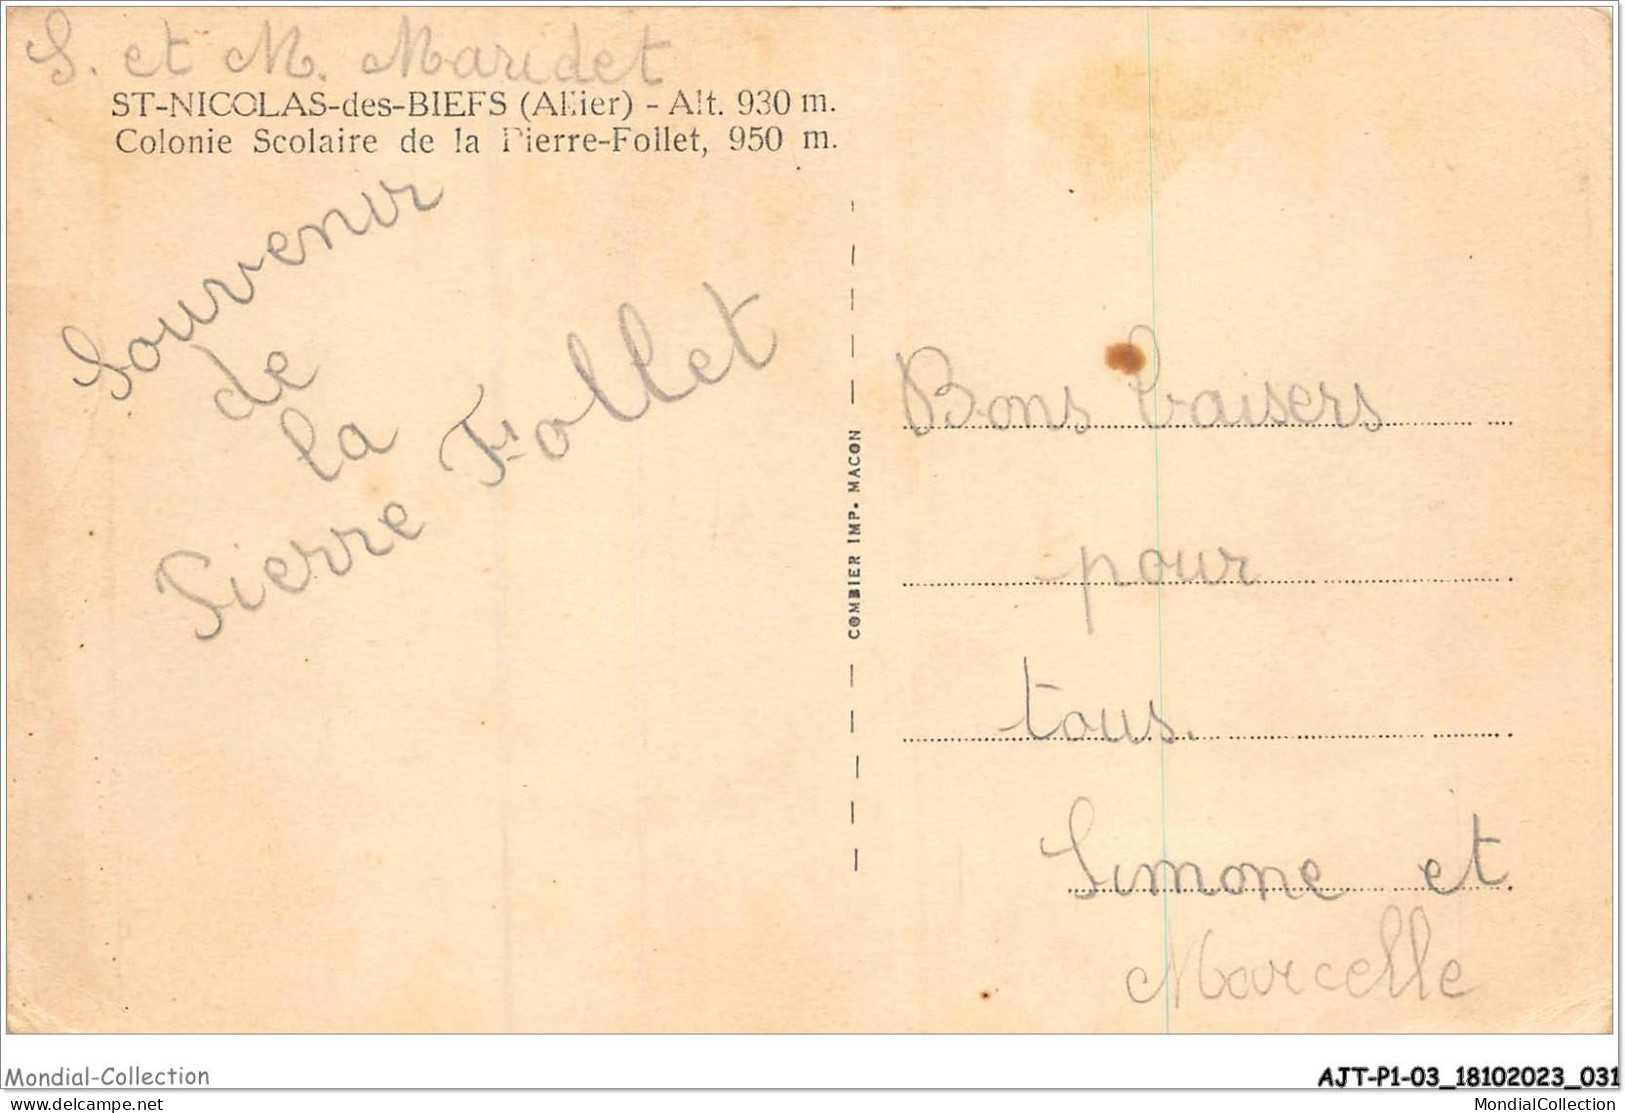 S. et M. Maridet
ST-NICOLAS-des-BIEFS (Allier) - Alt. 930 m.
Colonie Scolaire de la Pierre-Follet, 950 m.
Souvenir
de
la
Pierre Follet
COMBIER IMP. MACON
Bons baisers
pour
tous.
Simone et
Marcelle
Mondial-Collection
AJT-P1-03_18102023_031
delcampe.net
MondialCollection